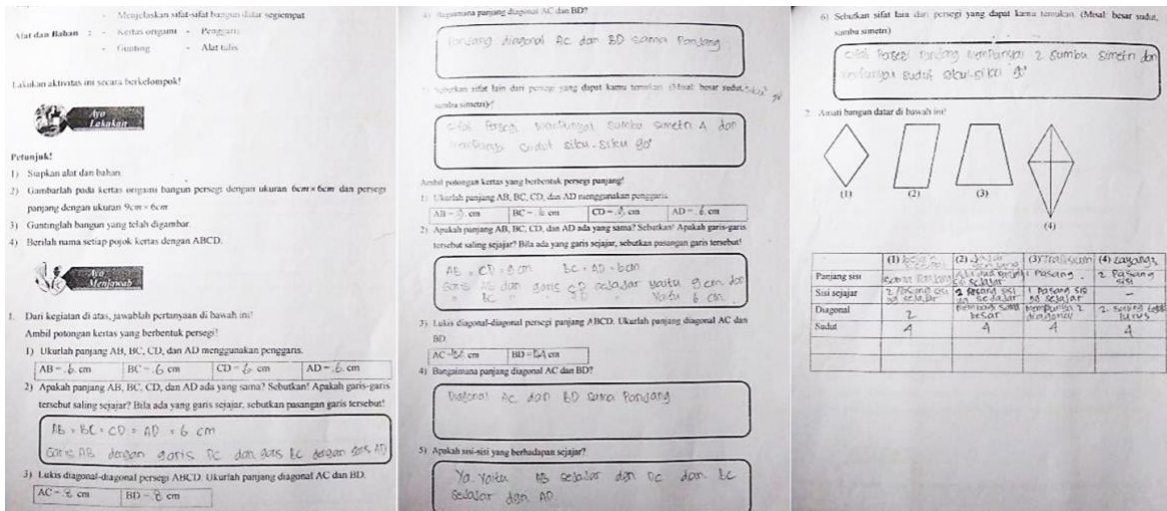 - Menjelaskan sifat-sifat bangun datar segiempat
Alat dan Bahan : - Kertas origami - Penggaris
- Gunting - Alat tulis
Lakukan aktivitas ini secara berkelompok!
Ayo
Lakukan
Petunjuk!
1) Siapkan alat dan bahan
2) Gambarlah pada kertas origami bangun persegi dengan ukuran 6cm × 6cm dan persegi
panjang dengan ukuran 9cm × 6cm
3) Guntinglah bangun yang telah digambar.
4) Berilah nama setiap pojok kertas dengan ABCD.
Ayo
Menjawab
1. Dari kegiatan di atas, jawablah pertanyaan di bawah ini!
Ambil potongan kertas yang berbentuk persegi!
1) Ukurlah panjang AB, BC, CD, dan AD menggunakan penggaris.
AB = 6 cm BC = 6 cm CD = 6 cm AD = 6 cm
2) Apakah panjang AB, BC, CD, dan AD ada yang sama? Sebutkan! Apakah garis-garis
tersebut saling sejajar? Bila ada yang garis sejajar, sebutkan pasangan garis tersebut!
AB = BC = CD = AD = 6 cm
Garis AB dengan garis DC dan garis BC dengan garis AD
3) Lukis diagonal-diagonal persegi ABCD. Ukurlah panjang diagonal AC dan BD.
AC = 8 cm BD = 8 cm
4) Bagaimana panjang diagonal AC dan BD?
Panjang diagonal AC dan BD sama Panjang
Sebutkan sifat lain dari persegi yang dapat kamu temukan. (Misal: besar sudut,
sumbu simetri)!
Sifat Persegi mempunyai sumbu simetri 4 dan
mempunyai sudut siku-siku 90°
Ambil potongan kertas yang berbentuk persegi panjang!
1) Ukurlah panjang AB, BC, CD, dan AD menggunakan penggaris.
AB = 9 cm BC = 6 cm CD = 9 cm AD = 6 cm
2) Apakah panjang AB, BC, CD, dan AD ada yang sama? Sebutkan! Apakah garis-garis
tersebut saling sejajar? Bila ada yang garis sejajar, sebutkan pasangan garis tersebut!
AB = CD = 9 cm BC = AD = 6 cm
Garis AB dan garis CD sejajar yaitu 9 cm dan
" BC " " AD " Yaitu 6 cm
3) Lukis diagonal-diagonal persegi panjang ABCD. Ukurlah panjang diagonal AC dan
BD
AC = cm BD = cm
4) Bangaimana panjang diagonal AC dan BD?
Diagonal AC dan BD sama Panjang
5) Apakah sisi-sisi yang berhadapan sejajar?
Ya. Yaitu AB sejajar dgn DC dan BC
sejajar dgn AD
6) Sebutkan sifat lain dari persegi yang dapat kamu temukan. (Misal: besar sudut,
sumbu simetri)
Sifat Persegi Panjang mempunyai 2 sumbu simetri dan
mempunyai sudut siku-siku 90°
2. Amati bangun datar di bawah ini!
(1) (2) (3)
(4)
(1) (2) (3) Trapesium (4) Layang2
Panjang sisi 1 Pasang 2 Pasang sisi
Sisi sejajar 2 Pasang sisi yg sejajar 2 Pasang sisi yg sejajar 1 Pasang sisi yg sejajar -
Diagonal 2 Mempunyai 2 diagonal
Sudut 4 4 4 4